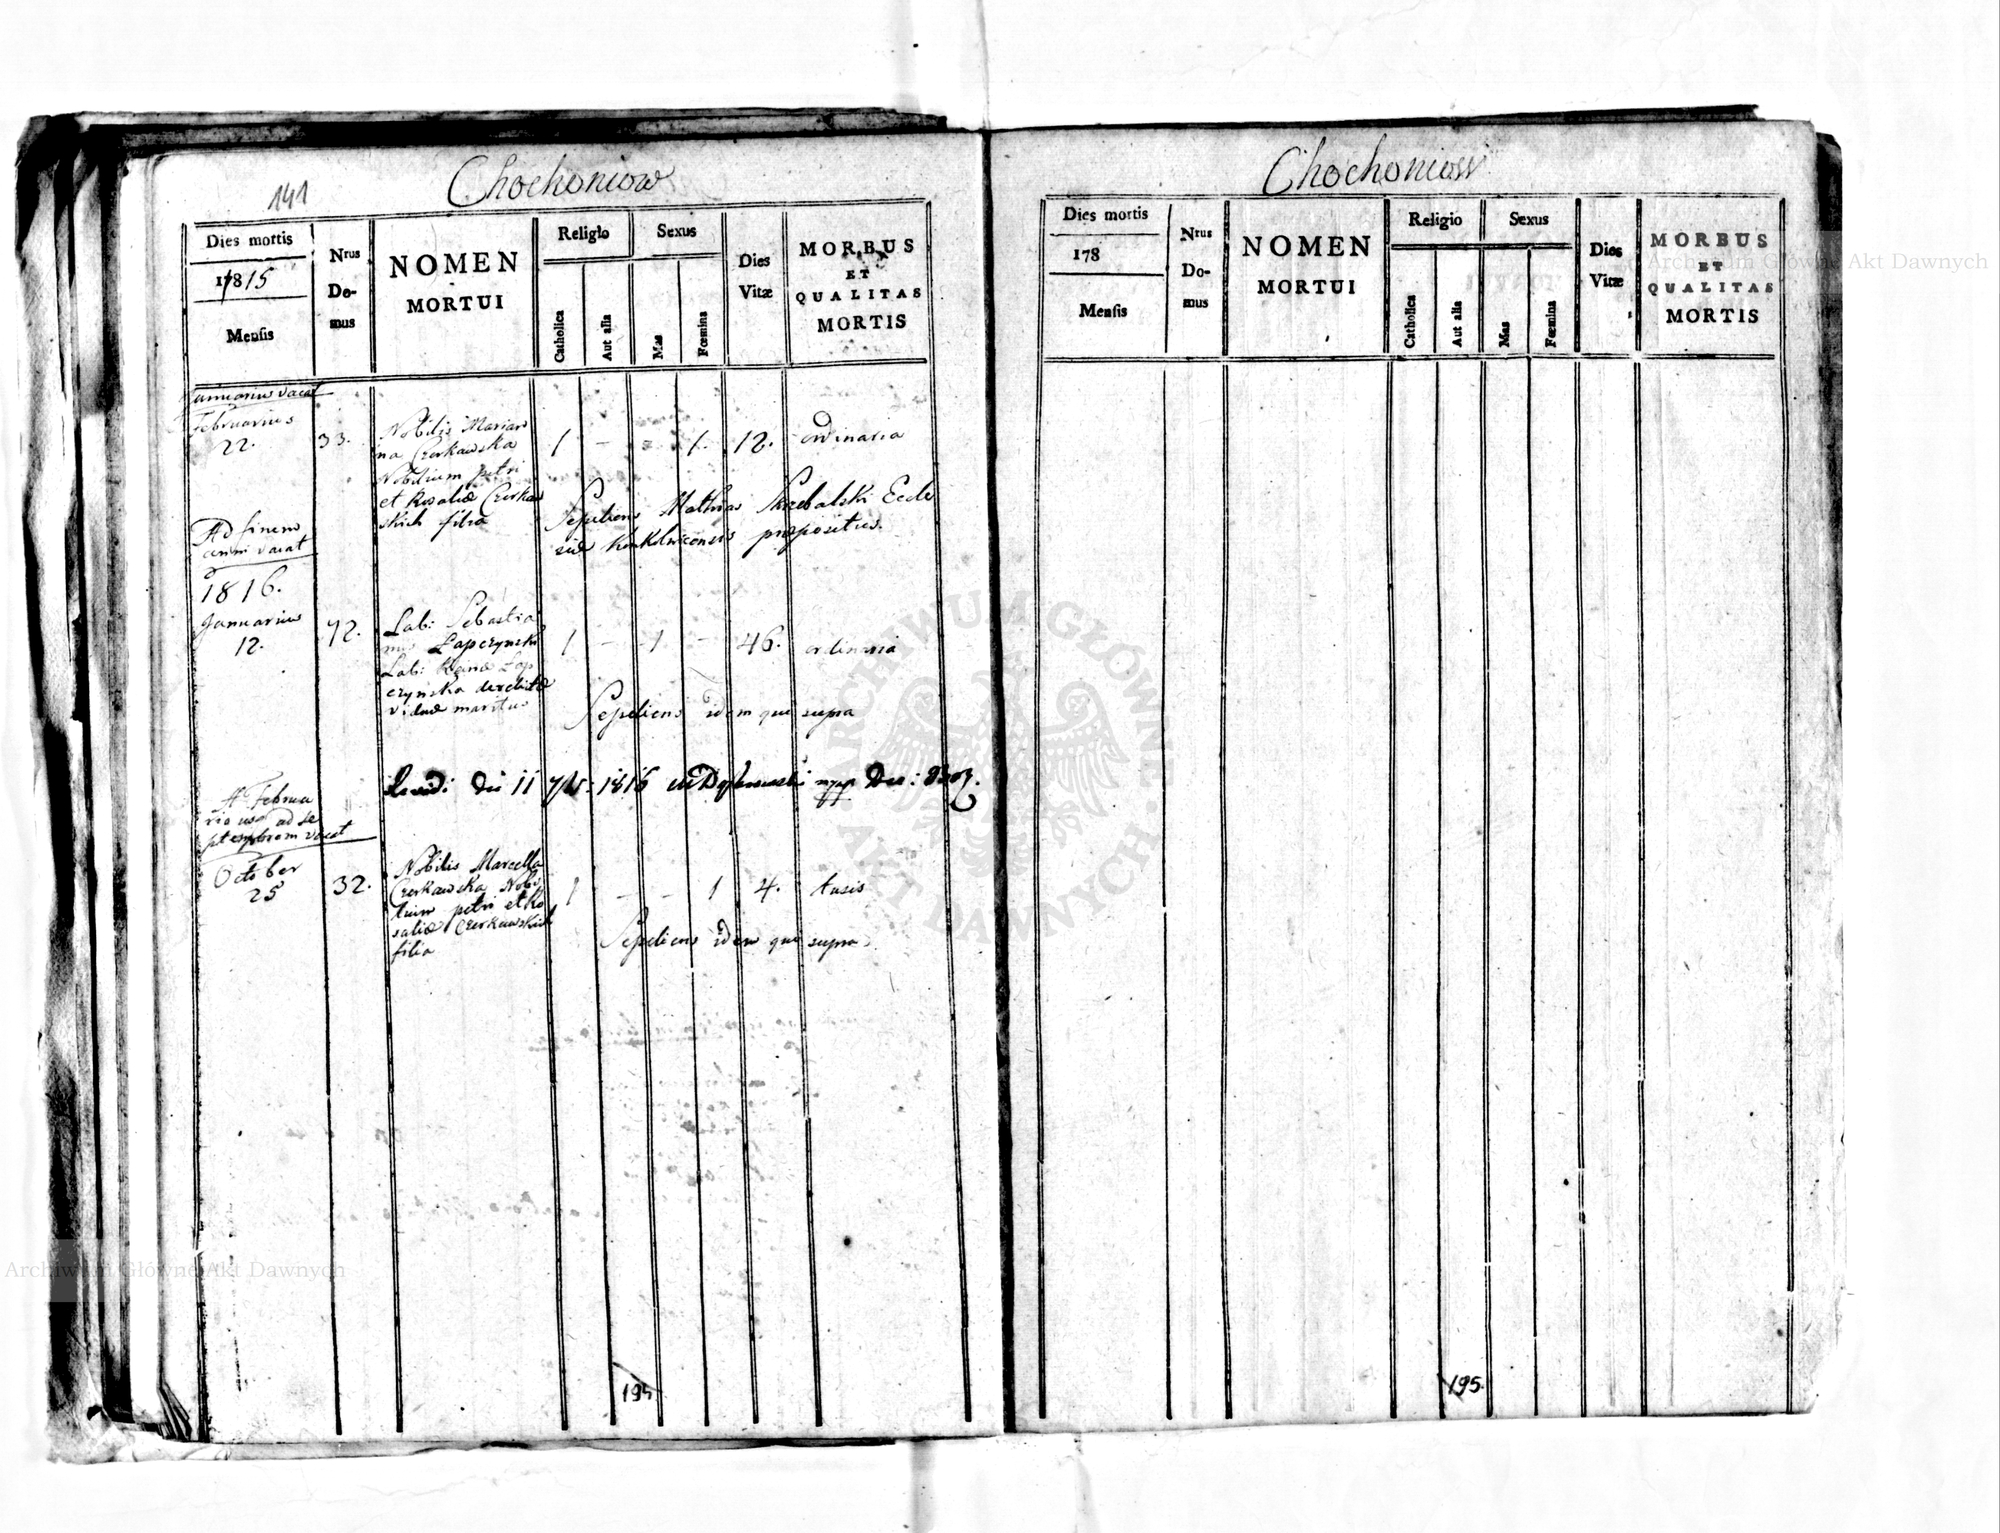 141
Chochoniow
Dies mortis
1815
Mensis
Nrus
Do-
mus
NOMEN
MORTUI
Religio
Catholica
Aut alia
Sexus
Mas
Fœmina
Dies
Vitæ
MORBUS
ET
QUALITAS
MORTIS
Januarius vacat
Februarius
22.
33.
Nobilis Marian
na Czerkawska
Nobilium Petri
et Rosaliæ Czerkaw
skich filia
1 - - 1. 12. ordinaria
Sepeliens Mathias Eccle
siæ præpositus.
Ad finem
anni vacat
1816.
Januarius
12.
72.
Lab: Sebastia
nus Łapczynski
Lab: Łap
czynska derelictæ
viduæ maritus
1 - 1 - 46. ordinaria
Sepeliens idem qui supra
11 1816
A Februa
rio usq ad Se
ptembrem vacat
October
25
32.
Nobilis Marcella
Czerkawska Nobi
lium Petri et Ro
saliæ Czerkawskich
filia
1 - - 1 4. tusis
Sepeliens idem qui supra
195
Chochoniow
Dies mortis
178
Mensis
Nrus
Do-
mus
NOMEN
MORTUI
Religio
Catholica
Aut alia
Sexus
Mas
Fœmina
Dies
Vitæ
MORBUS
ET
QUALITAS
MORTIS
195.
Archiwum Główne Akt Dawnych
ARCHIWUM GŁÓWNE · AKT DAWNYCH ·
Archiwum Główne Akt Dawnych